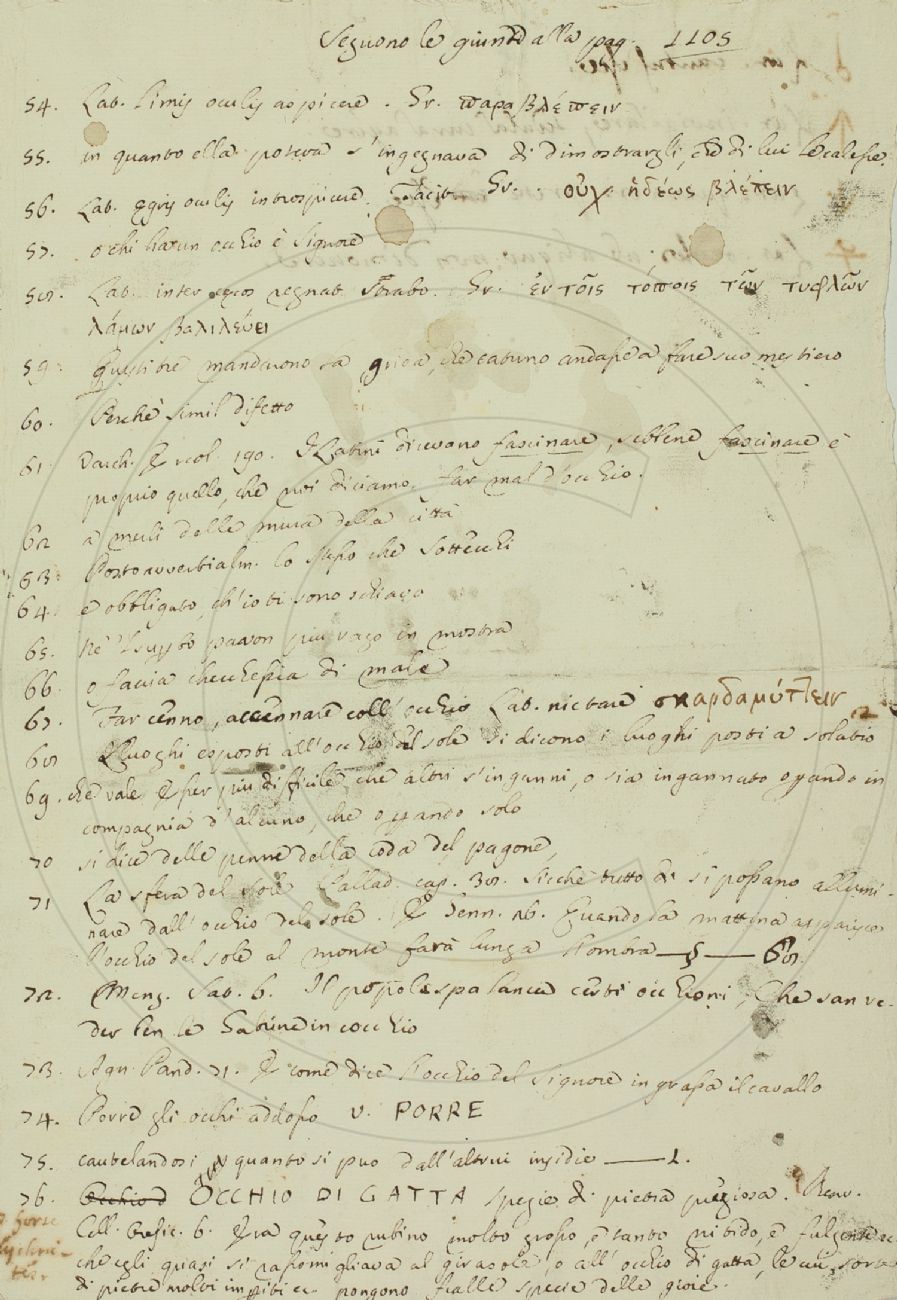 Seguono le giunte alla pag. 1105
54. Lat. limis oculis aspicere. Gr. παραβλέπειν
55. in quanto ella poteva s'ingegnava di dimostrargli, che di lui le calesse.
56. Lat. ęgris oculis introspicere. Tacit. Gr. οὐχ ἡδέως βλέπειν
57. o chi ha un occhio è Signore
58. Lat. inter cęcos regnat Strabo. Gr. ἐν τοῖς τόποις τῶν τυφλῶν
λάμων βασιλεύει
59. Questi tre mandarono la grida, che catuno andasse a fare suo mestiero
60. Perchè simil difetto
61. Varch. Ercol. 190. I Latini dicevono fascinare, sebbene fascinare è
propio quello, che noi diciamo. far mal d'occhio.
62 a meuli delle mura della città
63. Posto avverbialm. lo stesso che Sottecchi
64. e obbligato, ch'io ti sono schiavo
65. Nè 'l suo pavon più vago in mostra
66. o faccia checchessia di male
67. Far cenno, accennare coll'occhio Lat. nictare σκαρδαμύττειν
68 E Luoghi esposti all'occhio del sole si dicono i luoghi posti a solatio
69. che vale, E' per più difficile, che altri s'inganni, o sia ingannato oprando in
compagnia d'alcuno, che oprando solo
70 si dice delle penne della coda del pagone,
71 La sfera del sole Pallad. cap. 38. Sicchè tutto dì si possano allumi-
nare dall'occhio del sole. E Genn. 16. Quando la mattina apparisce
l'occhio del sole al monte farà lunga l'ombra — § — 68.
72. Menz. Sat. 6. Il popol spalanca certi occhioni, Che san ve-
der ben le Gabrine in cocchio
73. Agn. Pand. 71. E come dice l'occhio del Signore ingrassa il cavallo
74. Porre gli occhi addosso v. PORRE
75. cautelandosi in quanto si può dall'altrui insidie — 1.
76. OCCHIO DI GATTA spezie di pietra preziosa. Benv.
Cell. Orefic. 6. Era questo rubino molto grosso, e tanto nitido, e fulgente ec.
che egli quasi si rassomigliava al girasole, o all'occhio di gatta, le cui sorte
di pietre molti imperiti ec. pongono fralle specie delle gioie.